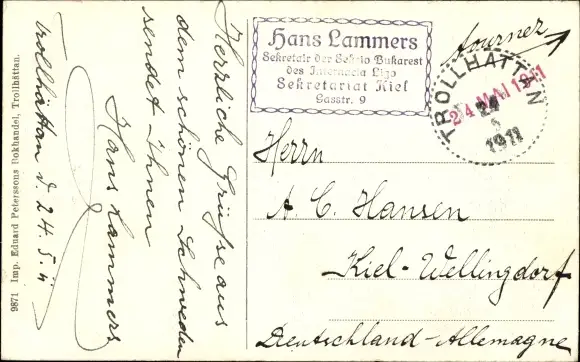 Herzliche Grüße aus
dem schönen Schweden
sendet Ihnen
Hans Lammers
Trollhättan d. 24.5.11
9871 Imp. Eduard Peterssons Bokhandel, Trollhättan.
Hans Lammers
Sekretair der Sektio Bukarest
des Internacia Ligo
Sekretariat Kiel
Gasstr. 9
tournez
TROLLHÄTTAN
24
5
1911
24 MAI 1911
Herrn
A. C. Hansen
Kiel-Wellingdorf
Deutschland-Allemagne